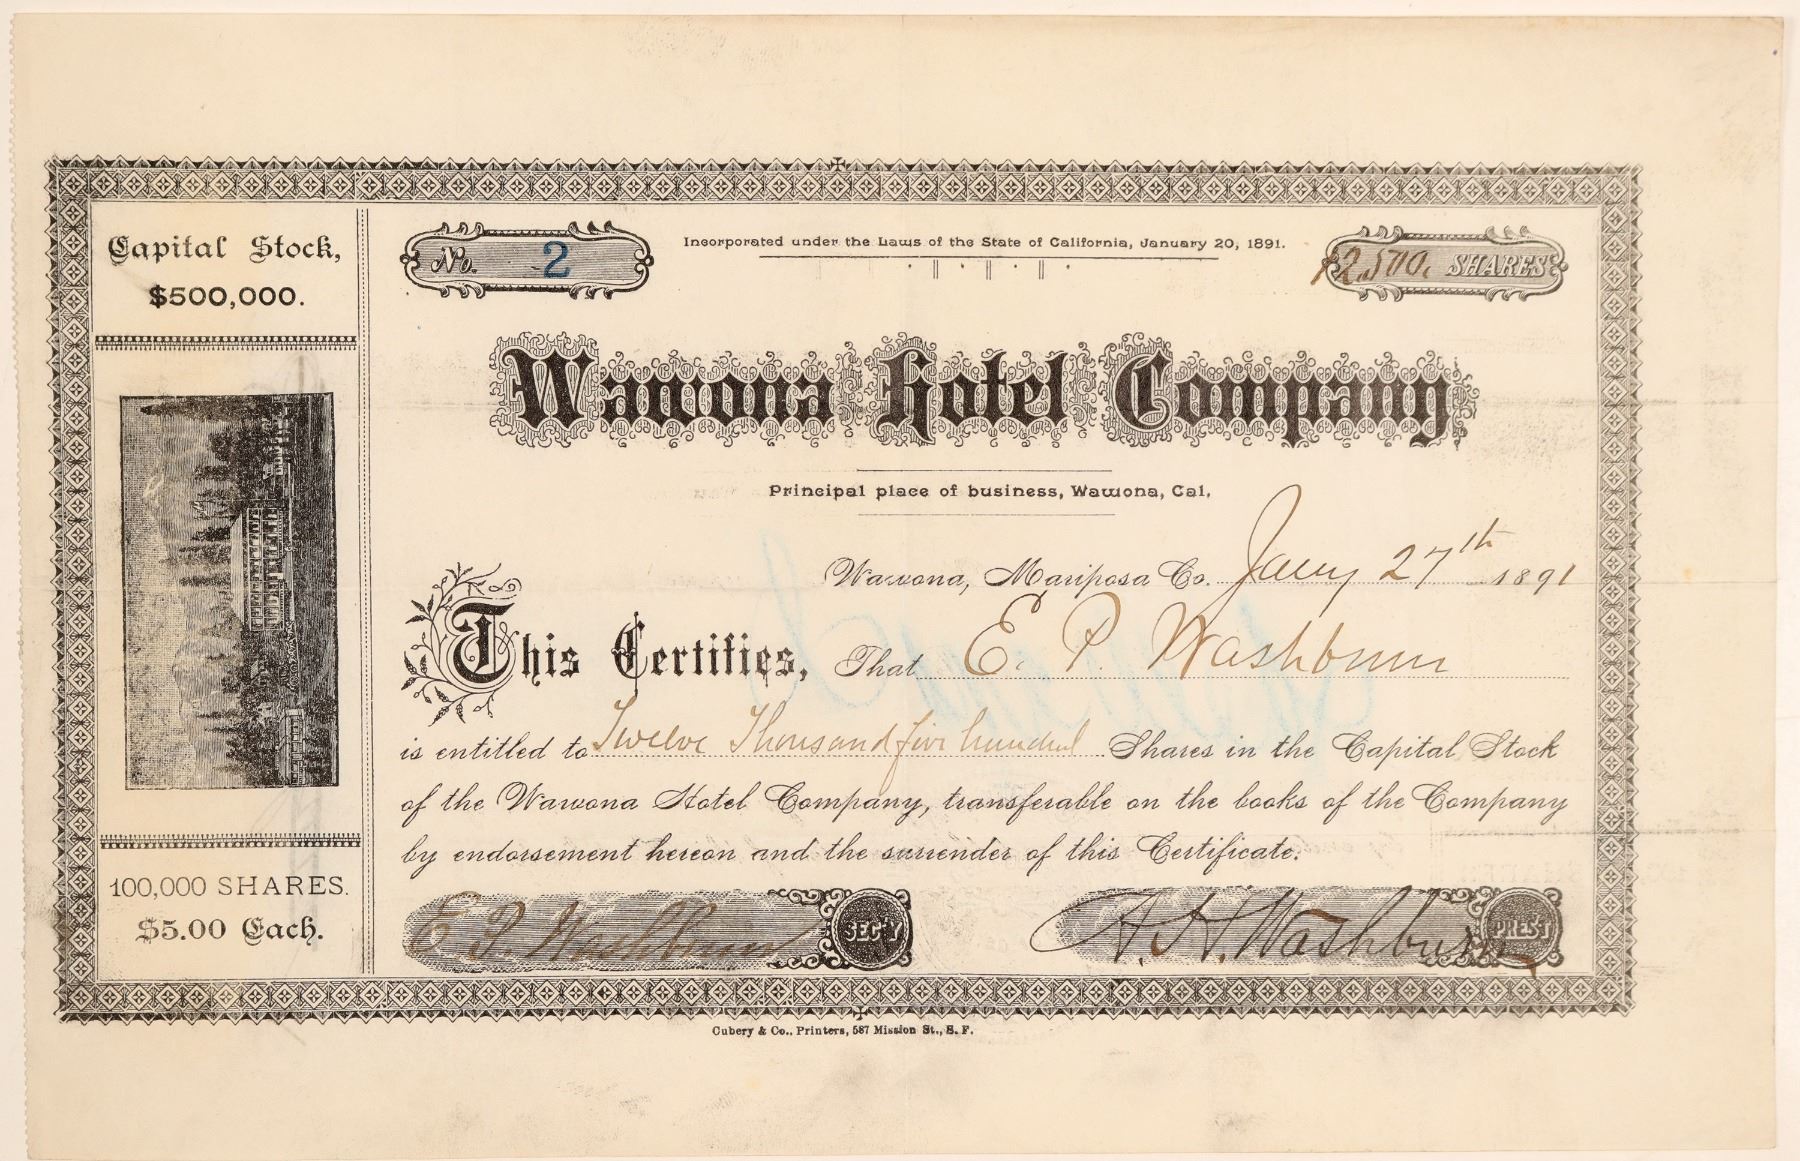 Capital Stock,
$500,000.
100,000 SHARES.
$5.00 Each.
No. 2
Incorporated under the Laws of the State of California, January 20, 1891.
12,500. SHARES
Wawona Hotel Company
Principal place of business, Wawona, Cal.
Wawona, Mariposa Co. Jany 27th 1891
This Certifies, That E. P. Washburn
is entitled to Twelve Thousand five hundred Shares in the Capital Stock
of the Wawona Hotel Company, transferable on the books of the Company
by endorsement hereon and the surrender of this Certificate.
E. P. Washburn SEC'Y
A. H. Washburn PREST
Cubery & Co., Printers, 587 Mission St., S. F.